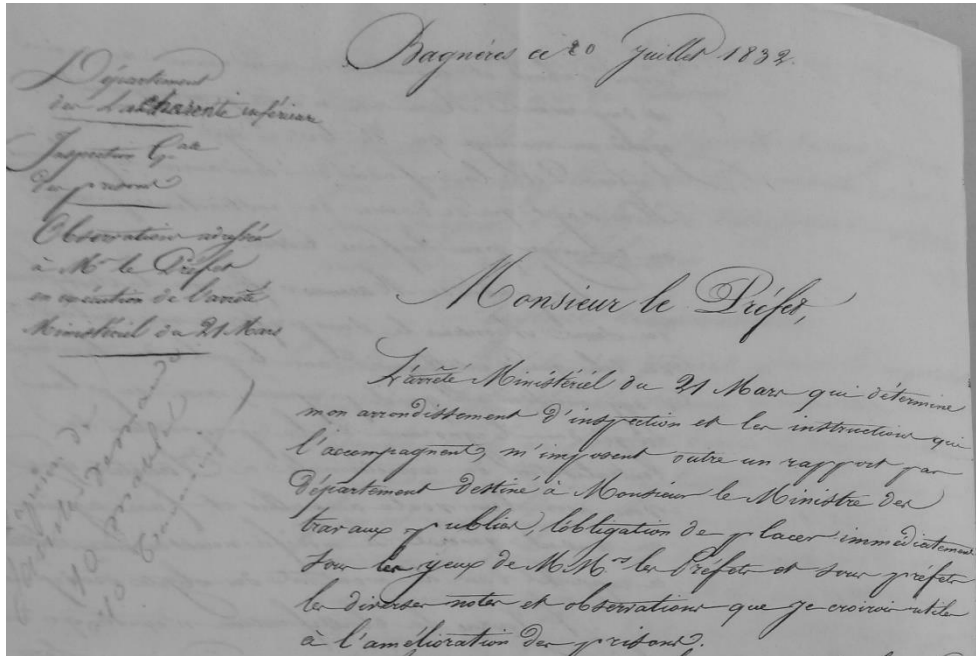 Bagnères ce 20 Juillet 1832.
Département
de La Charente inférieure
Inspection Gale
des prisons
Observations adressées
à Mr le Préfet
en exécution de l'arrêté
Ministériel du 21 Mars
Monsieur le Préfet,
L'arrêté Ministériel du 21 Mars qui détermine
mon arrondissement d'inspection et les instructions qui
l'accompagnent, m'imposent outre un rapport par
département destiné à Monsieur le Ministre des
travaux publics, l'obligation de placer immédiatement
sous les yeux de MMrs les Préfets et sous préfets
les diverses notes et observations que je croirois utiles
à l'amélioration des prisons.